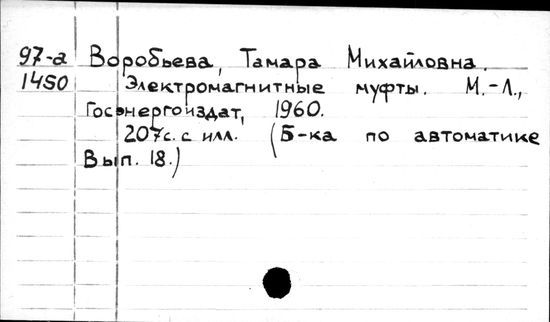 97-а Воробьева, Тамара Михайловна.
1450 Электромагнитные муфты. М.-Л.,
Госэнергоиздат, 1960.
207с. с илл. (Б-ка по автоматике
Вып. 18.)